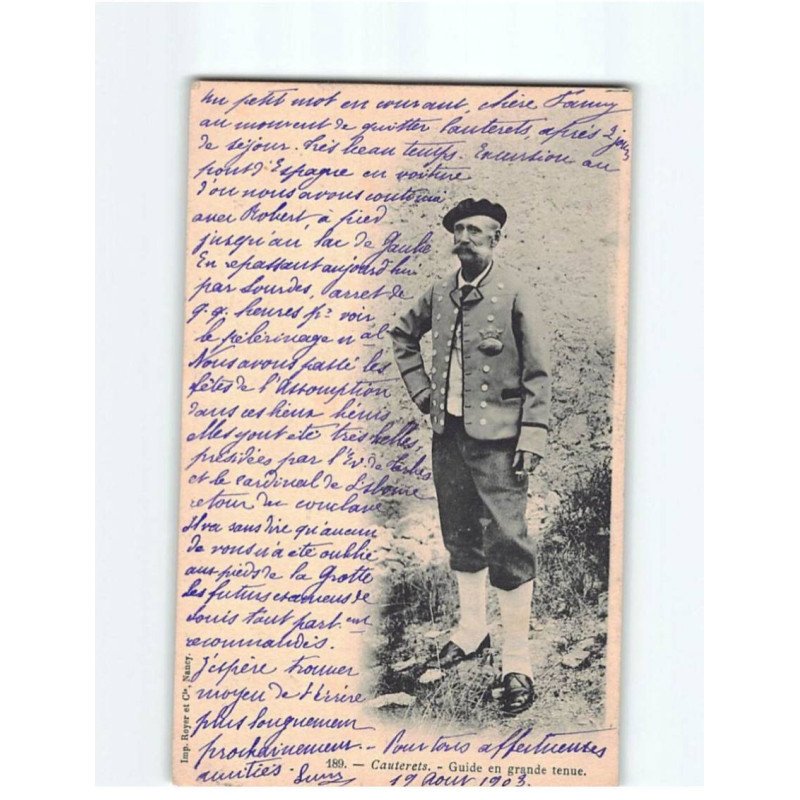 Un petit mot en courant, chère Fanny
au moment de quitter Cauterets, après 2 jours
de séjour. Très beau temps. Excursion au
pont d'Espagne en voiture
d'où nous avons continué
avec Robert à pied
jusqu'au lac de Gaube
En repassant aujourd'hui
par Lourdes, arrêt de
q.q. heures pr voir
le pélerinage nal
Nous avons passé les
fêtes de l'Assomption
dans ces lieux bénis,
elles y ont été très belles,
présidées par l'Ev. de Tarbes
et le Cardinal de Lisbonne
retour du conclave
Il va sans dire qu'aucun
de vous n'a été oublié
aux pieds de la Grotte
Les futurs examens de
Louis tout part. ent
recommandés.
J'espère trouver
moyen de t'écrire
plus longuement
prochainement. - Pour tous affectueuses
amitiés.
19 Août 1903.
189. — Cauterets. - Guide en grande tenue.
Imp. Royer et Cie, Nancy.